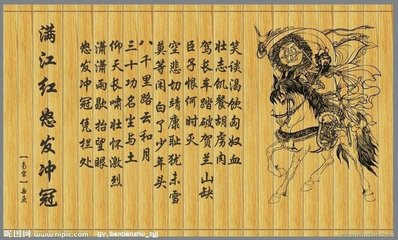 满江红 怒发冲冠
怒发冲冠凭栏处
潇潇雨歇抬望眼
仰天长啸壮怀激烈
三十功名尘与土
八千里路云和月
莫等闲白了少年头
空悲切靖康耻犹未雪
臣子恨何时灭
驾长车踏破贺兰山缺
壮志饥餐胡虏肉
笑谈渴饮匈奴血
昵图网 www.nipic.com